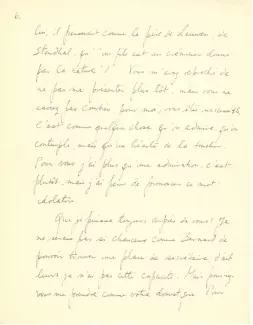 6.
lui, il pensait comme le père de Leuwen, de
Stendhal, qu' "un fils est un créancier donné
par la nature"! Vous m'avez
ne pas me présenter plus tôt, mais vous ne
pas pour moi, vous êtes
c'est comme quelque chose qu'on admire, qu'on
contemple, mais qu'on hésite de toucher.
Pour vous j'ai plus qu'une admiration, c'est
plutôt, mais j'ai peur de prononcer ce mot
idolâtrie.
Que je puisse toujours auprès de vous! Je
ne serais pas si chanceux comme Bernard de
pouvoir trouver une place de secrétaire, d'ail
leurs je n'ai pas cette capacité. Mais pourquoi
vous me prendre comme votre domestique. Pour